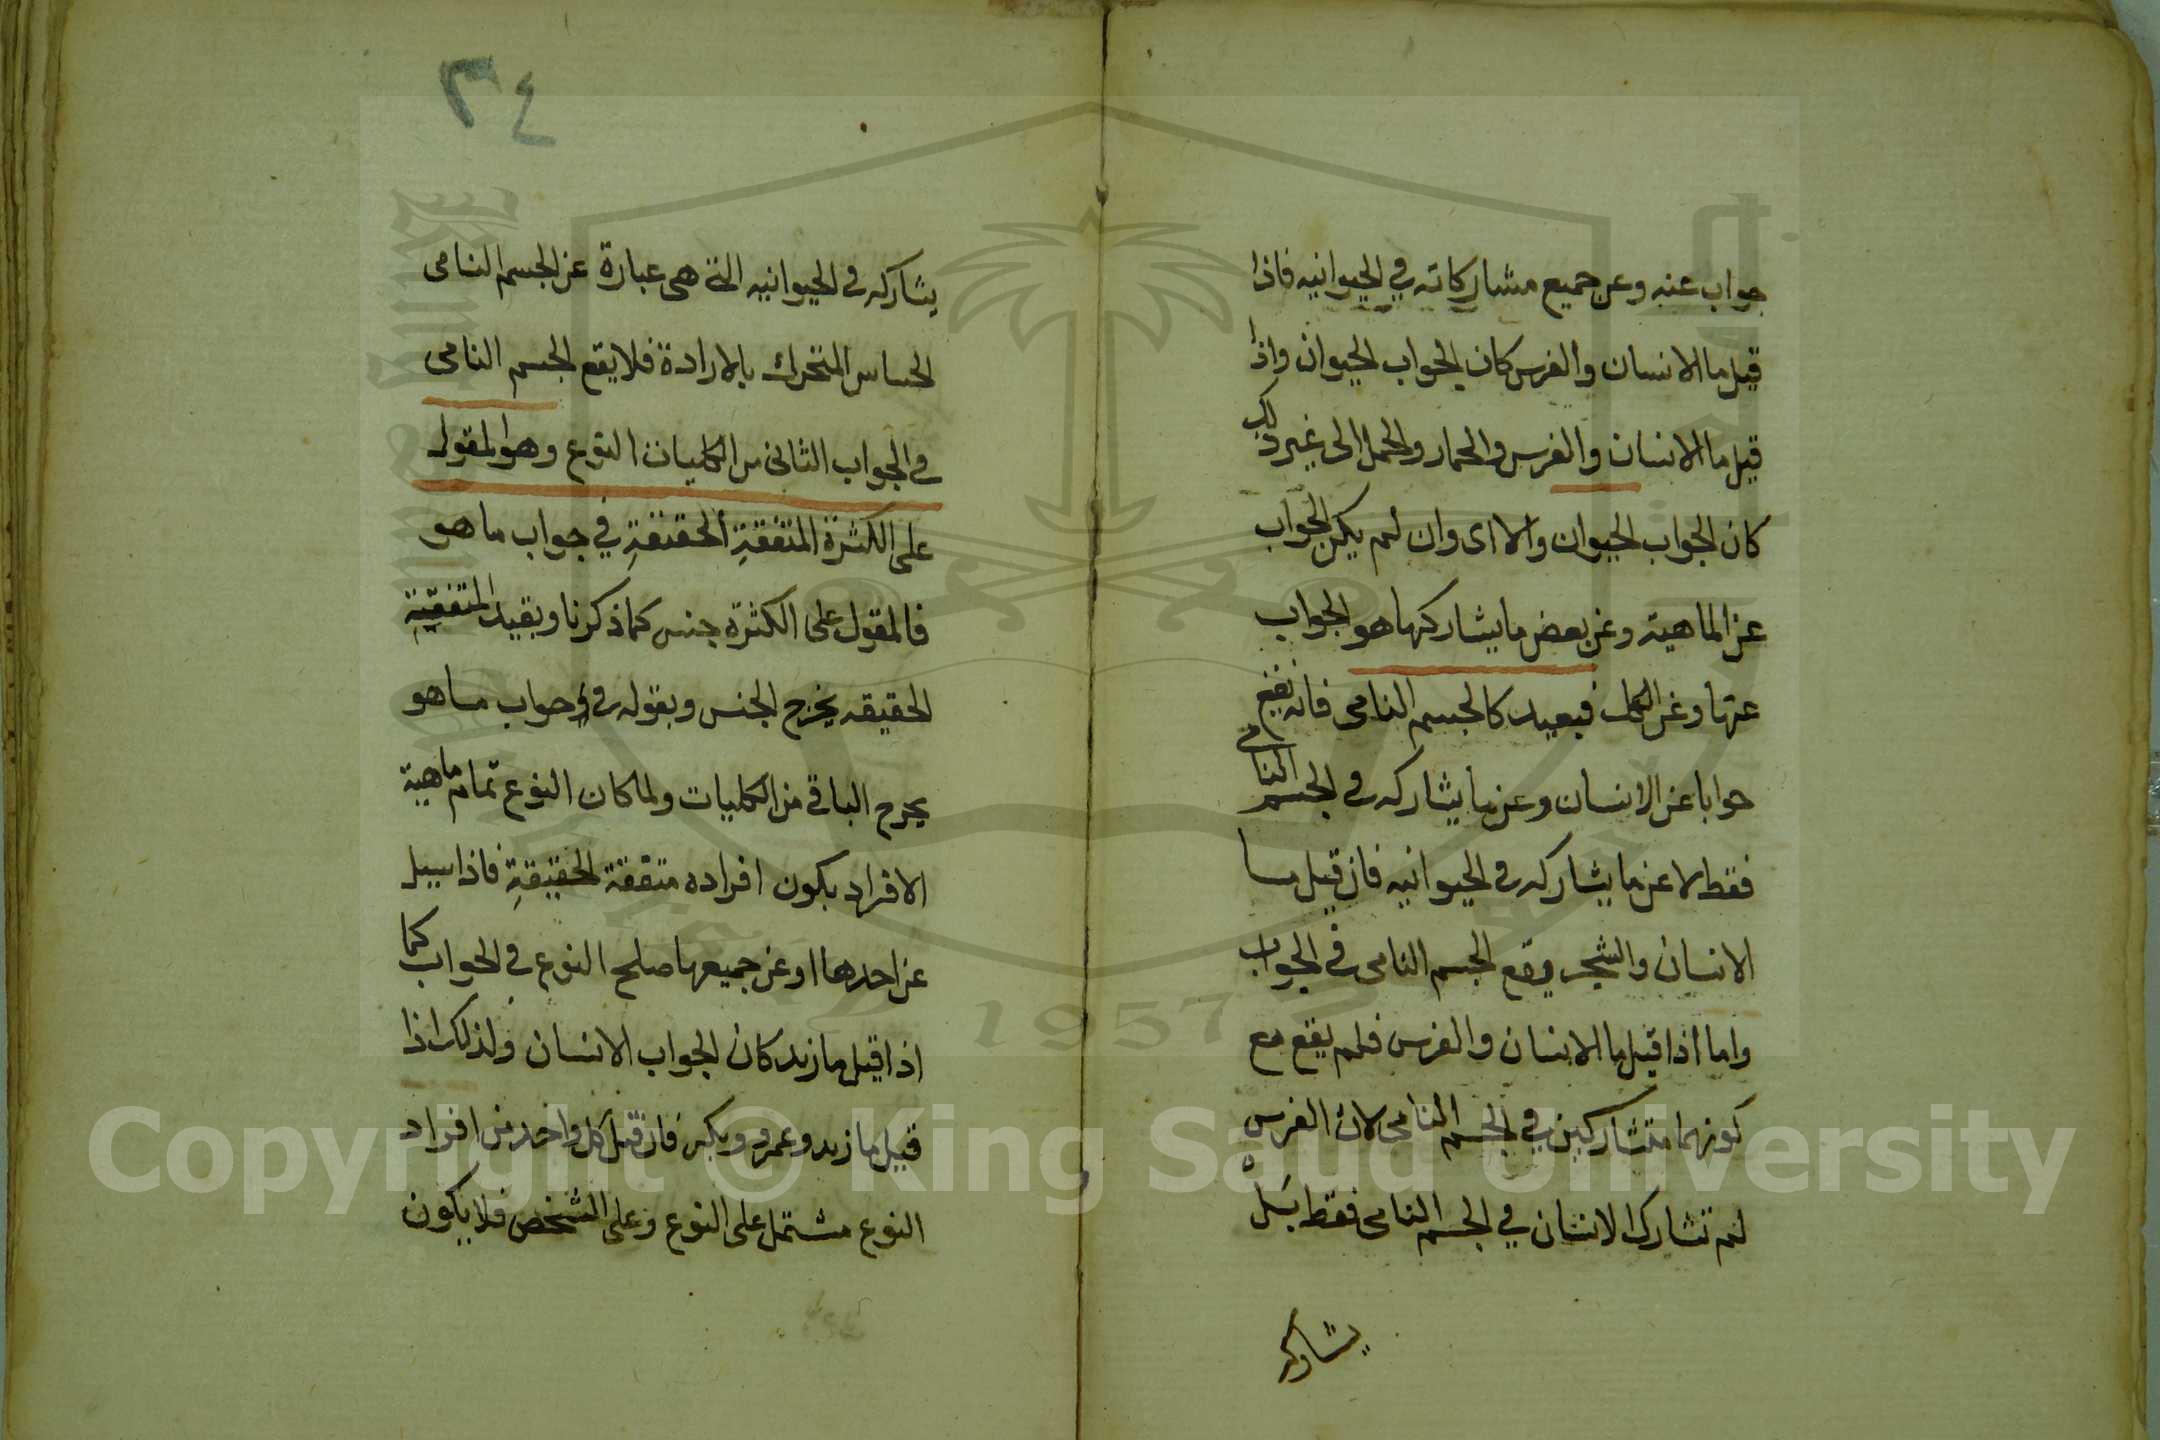 جواب عنه وعن جميع مشاركاته في الحيوانيه فاذا
قيل ما الانسان والفرس كان الجواب الحيوان واذا
قيل ما الانسان والفرس والحمار والجمل الى غير ذلك
كان الجواب الحيوان والا اى وان لم يكن الجواب
عن الماهية وعن بعض ما يشاركها هو الجواب
عنها وعن الكل فبعيد كالجسم النامى فانه يقع
جوابا عن الانسان وعن ما يشاركه في الجسم النامى
فقط لا عن ما يشاركه في الحيوانيه فان قيل ما
الانسان والشجر وقع الجسم النامى في الجواب
واما اذا قيل ما الانسان والفرس فلم يقع مع
كونهما متشاركين في الجسم النامى لان الفرس
لم تشارك الانسان في الجسم النامى فقط بل
يشاركه
٢٤
يشاركه في الحيوانيه التى هى عبارة عن الجسم النامى
الحساس المتحرك بالارادة فلا يقع الجسم النامى
في الجواب الثانى من الكليات النوع وهو المقول
على الكثرة المتفقة الحقيقة في جواب ما هو
فالمقول على الكثرة جنس كما ذكرنا وبقيد المتفقة
الحقيقه يخرج الجنس وبقوله في جواب ما هو
يخرج الباقى من الكليات ولما كان النوع تمام ماهية
الافراد بكون افراده متفقة الحقيقة فاذا سيل
عن احدها او عن جميعها صلح النوع في الجواب كما
اذا قيل ما زيد كان الجواب الانسان ولذلك اذا
قيل ما زيد وعمرو وبكر فان قيل كل واحد من افراد
النوع مشتمل على النوع وعلى الشخص فلا يكون
Copyright © King Saud University
1957